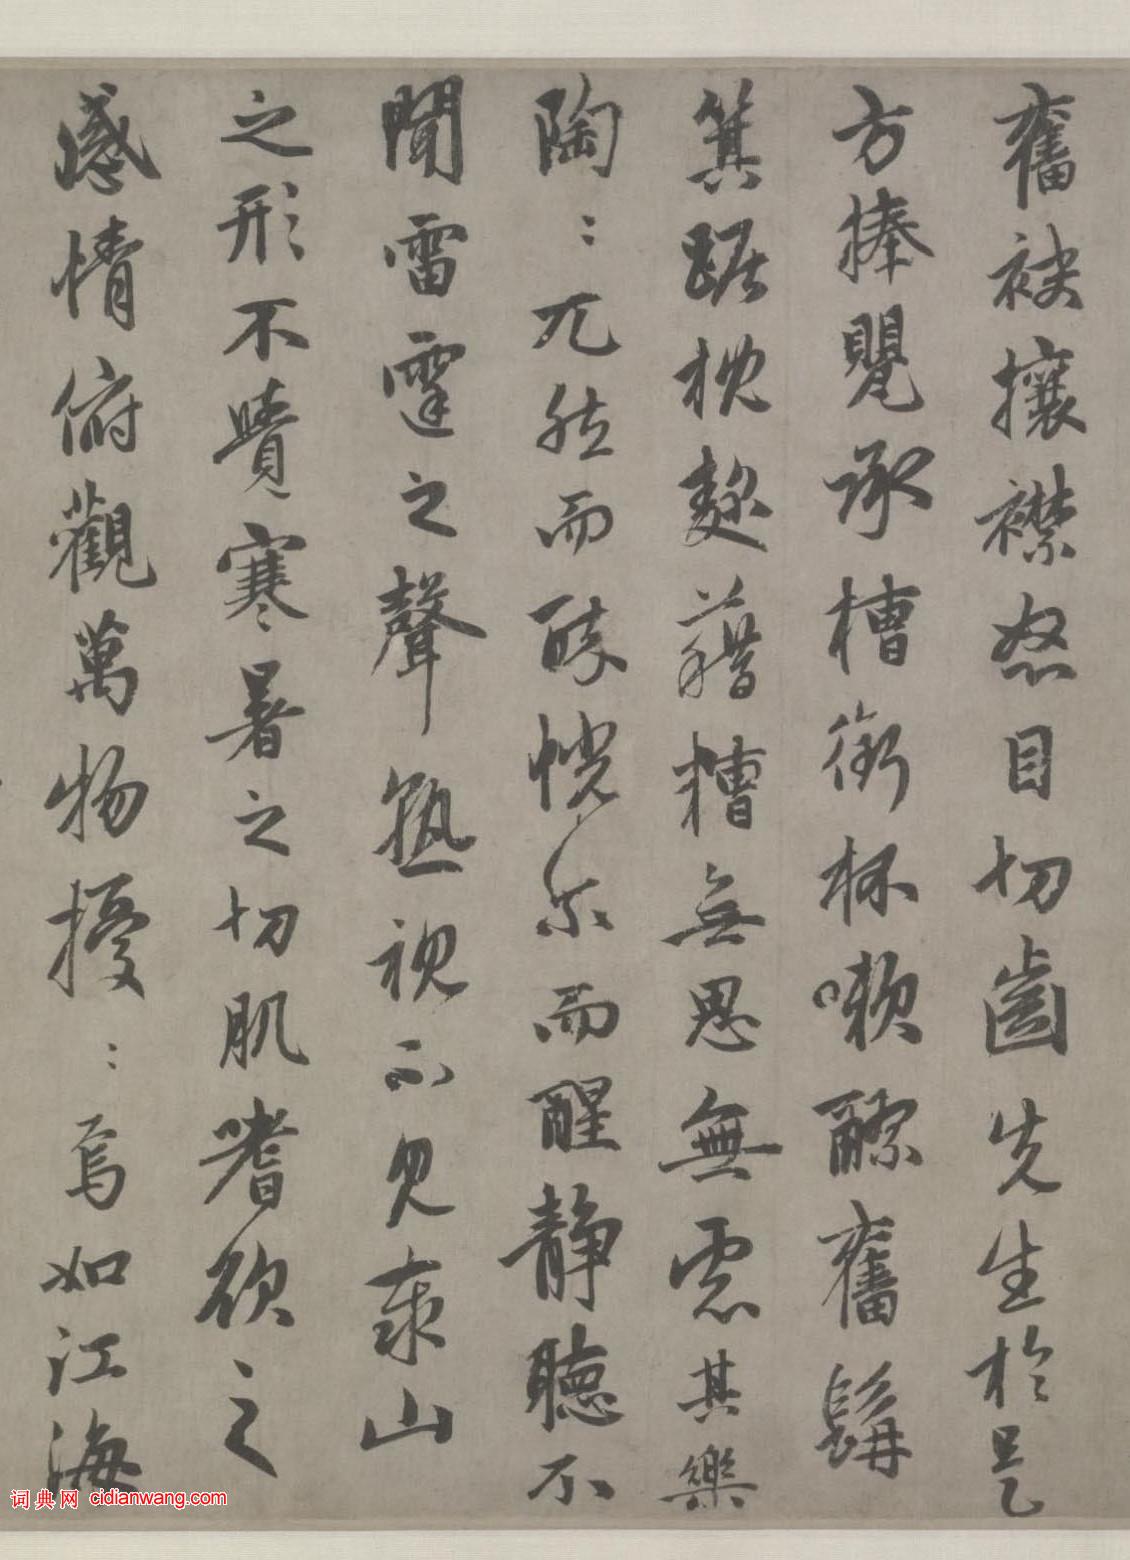 奮袂攘襟怒目切齒先生於是
方捧甖承槽銜杯嗽醪奮髯
箕踞枕麴藉糟無思無慮其樂
陶〻兀然而醉恍尔而醒静聽不
聞雷霆之聲熟視不見泰山
之形不覺寒暑之切肌嗜欲之
感情俯觀萬物擾〻焉如江海
词典网 cidianwang.com